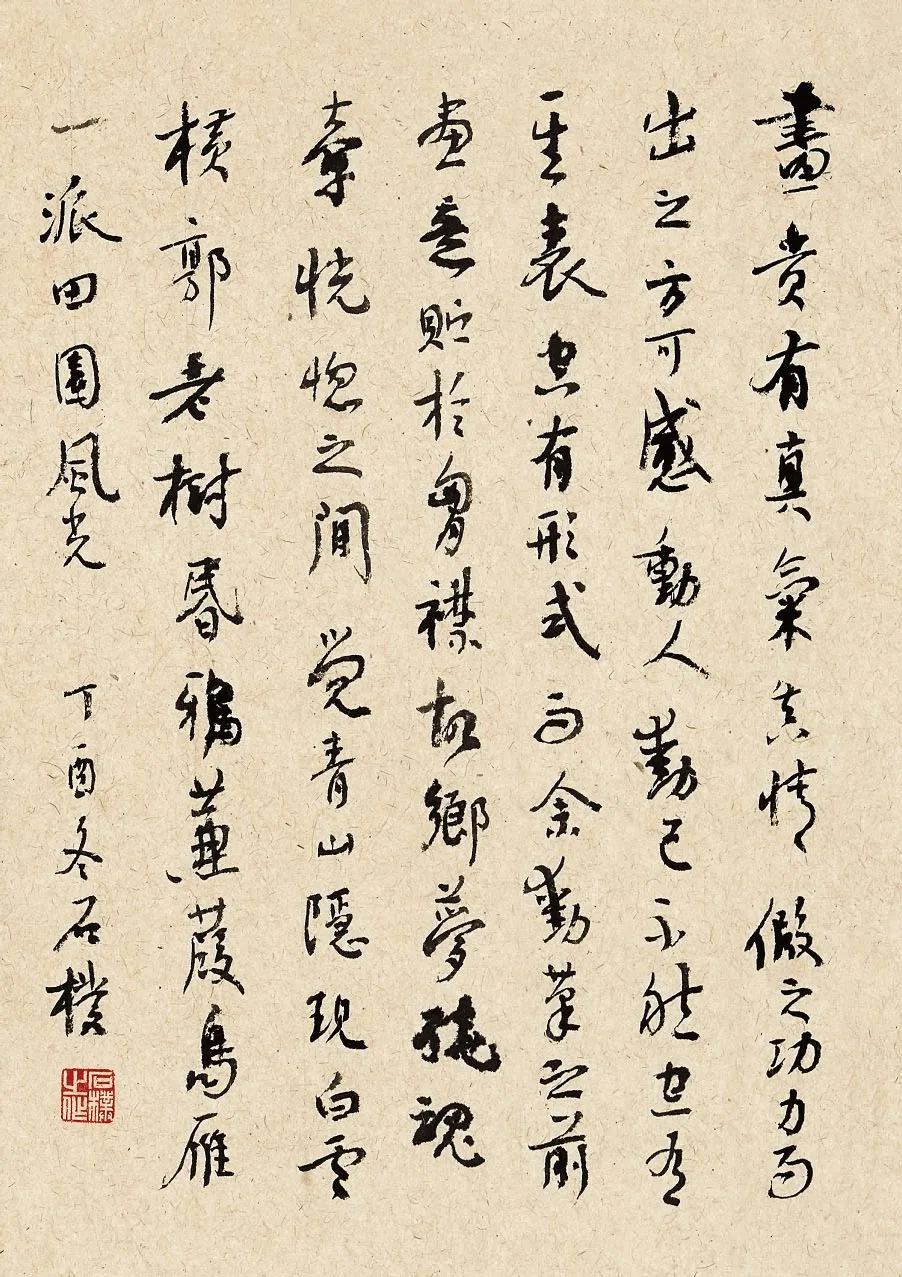 畫貴有真氣真情假之功力而
出之方可感動人動己不能空有
其表空有形式而余動筆之前
畫意貯於胷襟故鄉夢繞魂
牽恍惚之間覺青山隱現白雲
橫郭老樹昏鴉蒹葭鳥雁
一派田園風光 丁酉冬石樸